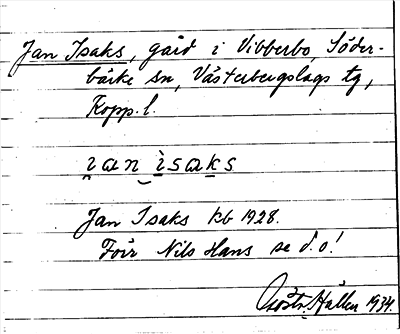 Jan Isaks, gård i Vibberbo, Söder-
bärke sn, Västerbergslags tg,
Kopp. l.
i̯an isaks
Jan Isaks kb 1928.
Förr Nils Hans se d. o!
Hállen 1934.